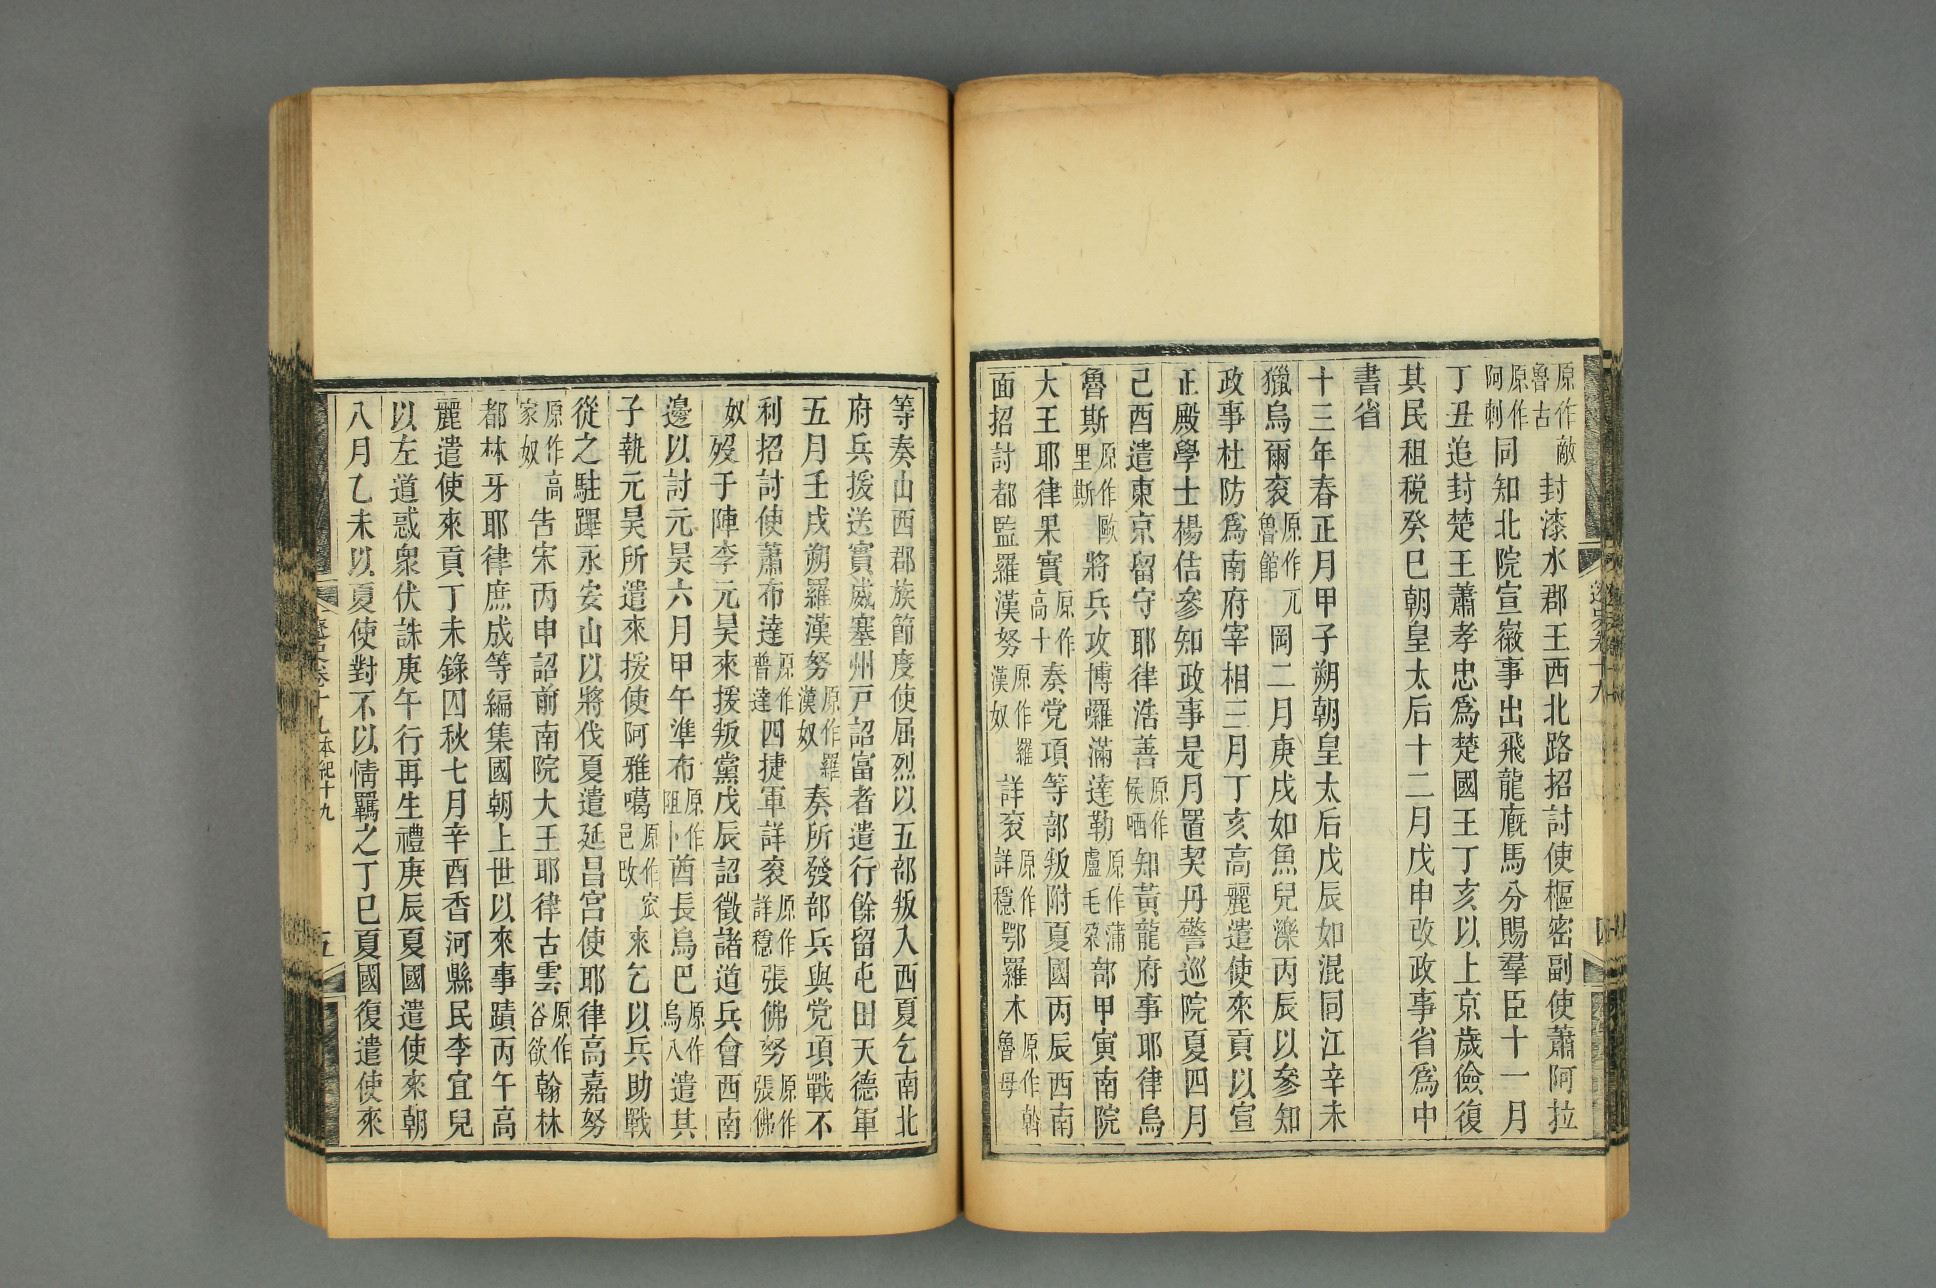 原作敵魯古封漆水郡王西北路招討使樞密副使蕭阿拉
原作阿剌同知北院宣徽事出飛龍廐馬分賜羣臣十一月
丁丑追封楚王蕭孝忠爲楚國王丁亥以上京歲儉復
其民租税癸巳朝皇太后十二月戊申改政事省爲中
書省
十三年春正月甲子朔朝皇太后戊辰如混同江辛未
獵烏爾袞原作兀魯館岡二月庚戌如魚兒濼丙辰以參知
政事杜防爲南府宰相三月丁亥高麗遣使來貢以宣
正殿學士楊佶參知政事是月置契丹警巡院夏四月
己酉遣東京留守耶律浩善原作侯哂知黃龍府事耶律烏
魯斯原作歐里斯將兵攻博囉滿達勒原作蒲盧毛朶部甲寅南院
大王耶律果實原作高十奏党項等部叛附夏國丙辰西南
面招討都監羅漢努原作羅漢奴詳袞原作詳穩鄂羅木原作斡魯母
等奏山西郡族節度使屈烈以五部叛入西夏乞南北
府兵援送實威塞州戸詔富者遣行餘留屯田天德軍
五月壬戌朔羅漢努原作羅漢奴奏所發部兵與党項戰不
利招討使蕭布達原作普達四捷軍詳袞原作詳穩張佛努原作張佛
奴歿于陣李元昊來援叛黨戊辰詔徵諸道兵會西南
邊以討元昊六月甲午準布原作阻卜酋長烏巴原作烏八遣其
子執元昊所遣來援使阿雅噶原作窊邑改來乞以兵助戰
從之駐蹕永安山以將伐夏遣延昌宮使耶律高嘉努
原作高家奴告宋丙申詔前南院大王耶律古雲原作谷欲翰林
都林牙耶律庶成等編集國朝上世以來事蹟丙午高
麗遣使來貢丁未錄囚秋七月辛酉香河縣民李宜兒
以左道惑衆伏誅庚午行再生禮庚辰夏國遣使來朝
八月乙未以夏使對不以情羈之丁巳夏國復遣使來
遼史卷十九
四
遼史卷十九 本紀十九
五